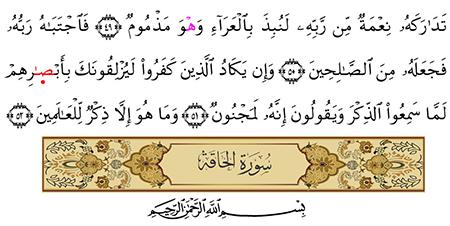 تَدَٰرَكَهُۥ نِعْمَةٌ مِّن رَّبِّهِۦ لَنُبِذَ بِٱلْعَرَآءِ وَهْوَ مَذْمُومٌ ٤٩ فَٱجْتَبَٰهُ رَبُّهُۥ
فَجَعَلَهُۥ مِنَ ٱلصَّٰلِحِينَ ٥٠ وَإِن يَكَادُ ٱلَّذِينَ كَفَرُواْ لَيُزْلِقُونَكَ بِأَبْصَٰرِهِمْ
لَمَّا سَمِعُواْ ٱلذِّكْرَ وَيَقُولُونَ إِنَّهُۥ لَمَجْنُونٌ ٥١ وَمَا هُوَ إِلَّا ذِكْرٌ لِّلْعَٰلَمِينَ ٥٢
سُورَةُ الحَاقَّةِ
بِسْمِ ٱللَّهِ ٱلرَّحْمَٰنِ ٱلرَّحِيمِ